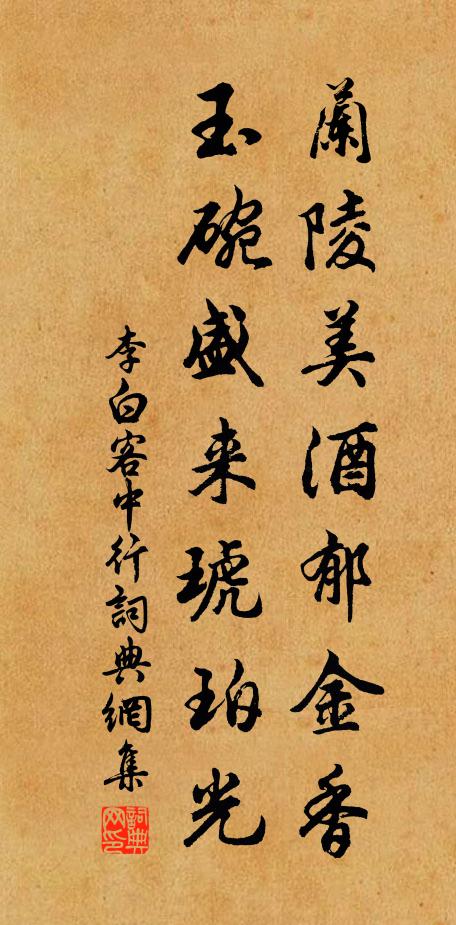 蘭陵美酒郁金香
玉碗盛来琥珀光
李白客中行詞典網集
詞典網印